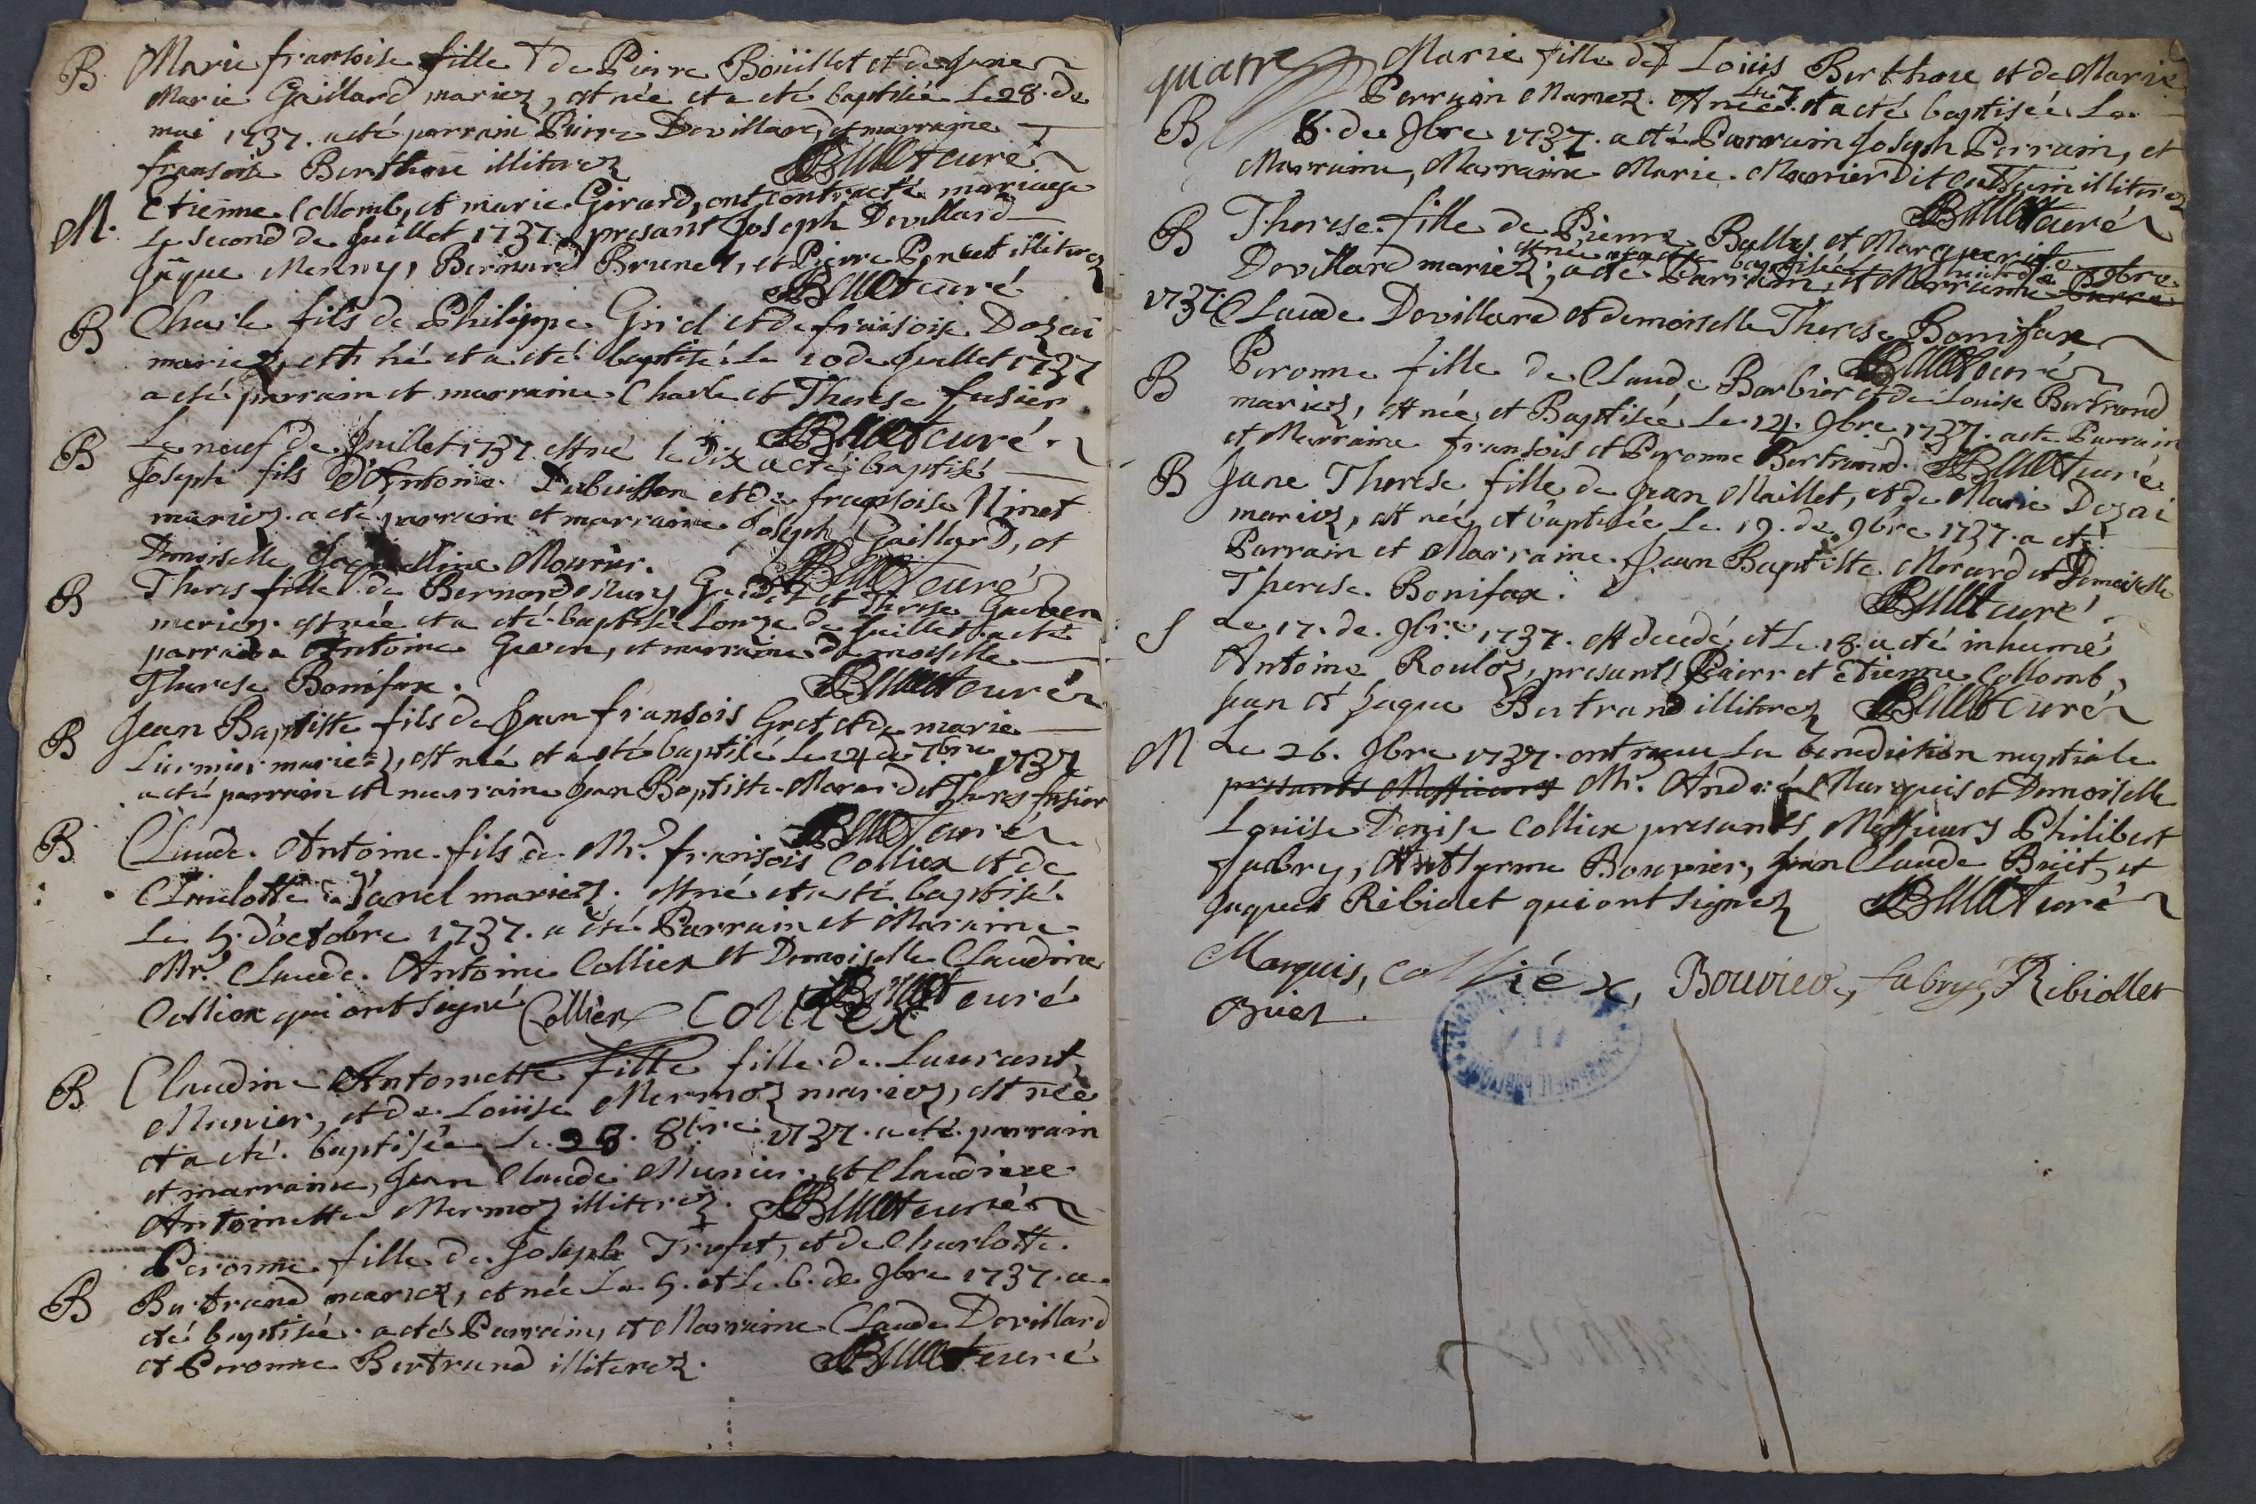 B Marie fransoise fille de Pierre Boüillet et de Jane
Marie Gaillard mariez, est née et a eté baptisée Le 28. de
mai 1737. a eté parrain Pierre Devillard, et marraine
fransoise Berthoue illiterez Billet curé
M. Etienne Collomb, et marie Girard, ont contracté mariage
Le second de Juillet 1737. presant Joseph Devillard
Jaque Mermy, Bernard Brunet, et Pierre Poncet illiterez
Billet curé
B Charle fils de Philippe Grid et de fransoise Dozai
mariez, est né et a eté baptisé Le 10 de Juillet 1737
a eté parrain et marraine Charle et Therese fusier
Billet curé.
B Le neuf de Juillet 1737. est né le dix a eté baptisé
Joseph fils D'Antoine Dubuisson et de fransoise Ninet
mariez. a eté parrain et marraine Joseph Gaillard, et
Demoiselle Jacqueline Mourier. Billet curé
B Theres fille de Bernard et Therese
mariez. est née et a eté baptisée Lonze de Juillet a eté
parrain Antoine Guven, et marraine demoiselle
Therese Bonifax. Billet curé
B Jean Baptiste fils de Jean fransois Gret et de marie
Liurmier mariez, est né et a eté baptisé Le 24 de 7bre 1737
a eté parrain et marraine Jean Baptiste Morard et Theres fusier
Billet curé
B Claude Antoine fils de Mr. fransois Colliex et de
Claudotte de Janel mariez. est né et a eté baptisé
Le 5. d'octobre 1737. a eté Parrain et Maraine
Mr. Claude Antoine Colliex et Demoiselle Claudine
Colliex qui ont signé Colliex Colliex Billet curé
B Claudine Antoinette fille fille de Laurant
Munier, et de Loüise Mermoz mariez, est née
et a eté baptisée Le 28. 8bre 1737. a eté parrain
et marraine, Jean Claude Munier, et Claudine
Antoinette Mermoz illiterez. Billet curé
Peronne fille de Joseph Trufet, et de Charlotte
B Bertrand mariez, et née Le 5. et Le 6. de 9bre 1737. a
eté baptisée. a eté Parrain, et Marraine Claude Devillard
et Peronne Bertrand illiterez. Billet curé
quatre Marie fille de Loüis Berthoue et de Marie
Perruin Mariez. et née Le 7. et a eté baptisée Le
B 8. de 9bre 1737. a eté Parrain Joseph Perruin, et
Marraine, Marraine Marie Mourier dit illiterez
Billet curé
B Therese fille de Pierre Ballys et Marguerite
est née et a eté baptisée
Devillard mariez, a eté Parrain, et Marraine 9bre
1737. Claude Devillard et demoiselle Therese Bonifax
Billet curé
B Peronne fille de Claude Barbier et de Louise Bertrand
mariez, est née, et Baptisée Le 14. 9bre 1737. a eté Parrain
et Marraine fransois et Peronne Bertrand. Billet curé
B Jane Therese fille de Jean Maillet, et de Marie Dozai
mariez, est née, et baptisée Le 19. de 9bre 1737. a eté
Parrain et Marraine Jean Baptiste Morard et Demoiselle
Therese Bonifax. Billet curé
S Le 17. de 9bre 1737. est decedé, et Le 18. a eté inhumé
Antoine Rouloz, presants Pierr et Etienne Collomb,
Jean et Jaque Bertrand illiterez Billet curé
M Le 26. 9bre 1737. ont receu La benediction nuptiale
presants Messieurs Mr. André Marquis et Demoiselle
Loüise Denise Colliex presants Messieurs Philibert
fabry, Anthyrme Bouvier, Jean Claude Briët, et
Jaques Ribiolet qui ont signez Billet curé
Marquis, colliéx, Bouvier, fabry, Ribiollet
Briet.